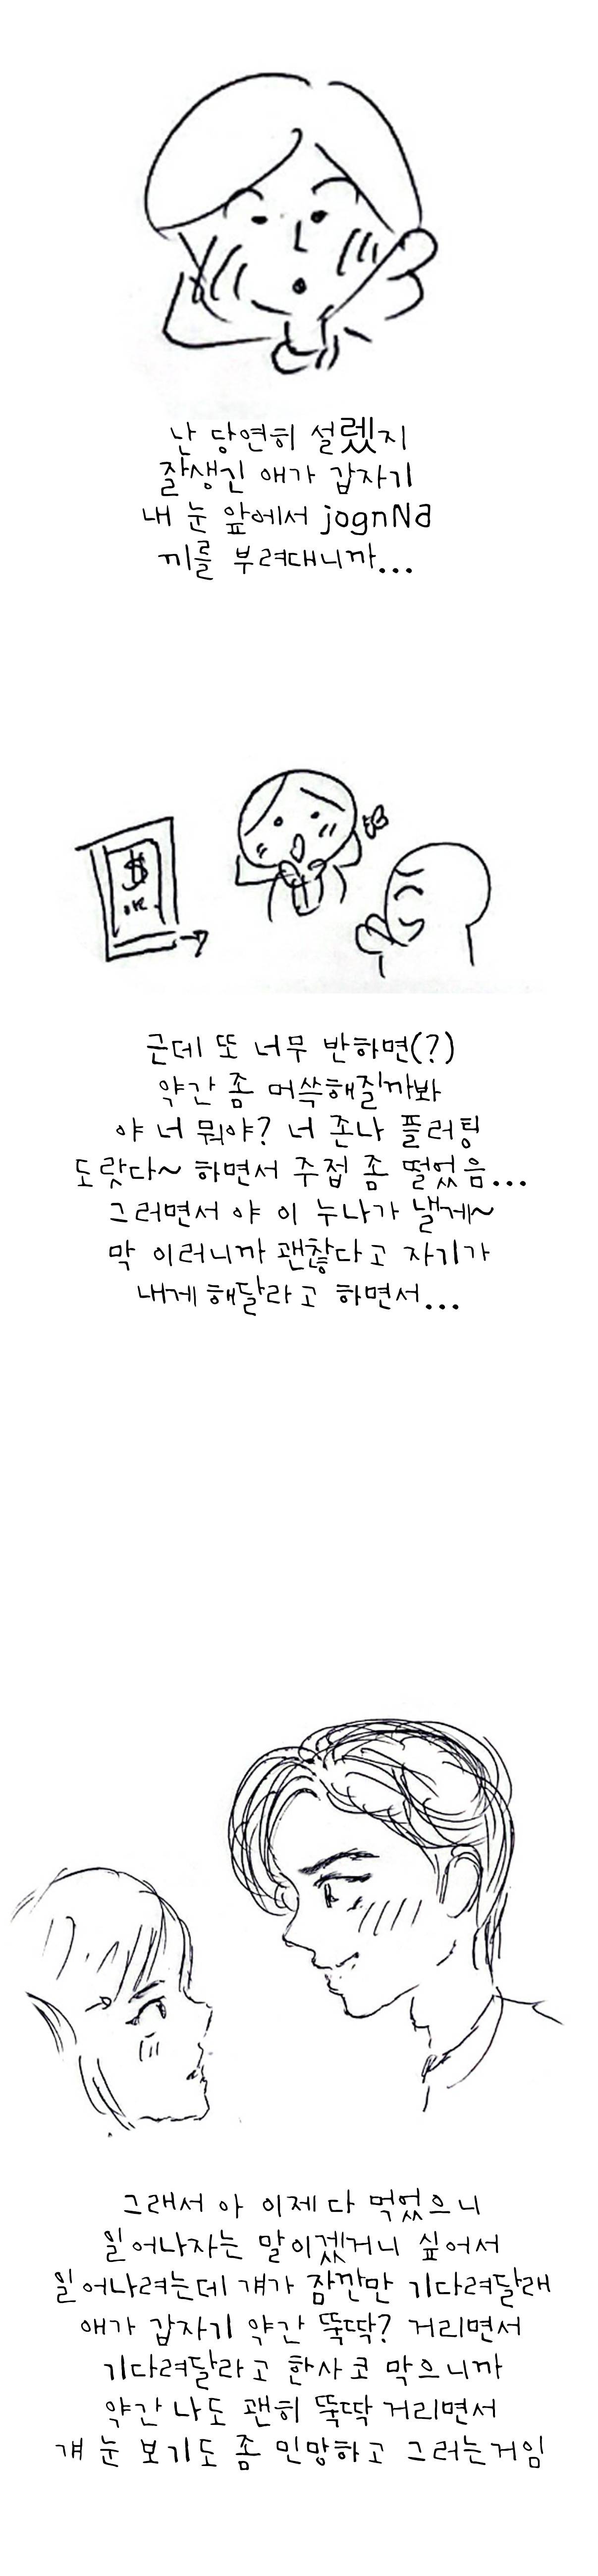 난 당연히 설렜지
잘생긴 애가 갑자기
내 눈 앞에서 jognNa
끼를 부려대니까...
$
근데 또 너무 반하면(?)
약간 좀 머쓱해질까봐
야 너 뭐야? 너 존나 플러팅
도랏다~ 하면서 주접 좀 떨었음...
그러면서 야 이 누나가 낼게~
막 이러니까 괜찮다고 자기가
내게 해달라고 하면서...
그래서 아 이제 다 먹었으니
일어나자는 말이겠거니 싶어서
일어나려는데 걔가 잠깐만 기다려달래
애가 갑자기 약간 뚝딱? 거리면서
기다려달라고 한사코 막으니까
약간 나도 괜히 뚝딱 거리면서
걔 눈 보기도 좀 민망하고 그러는거임